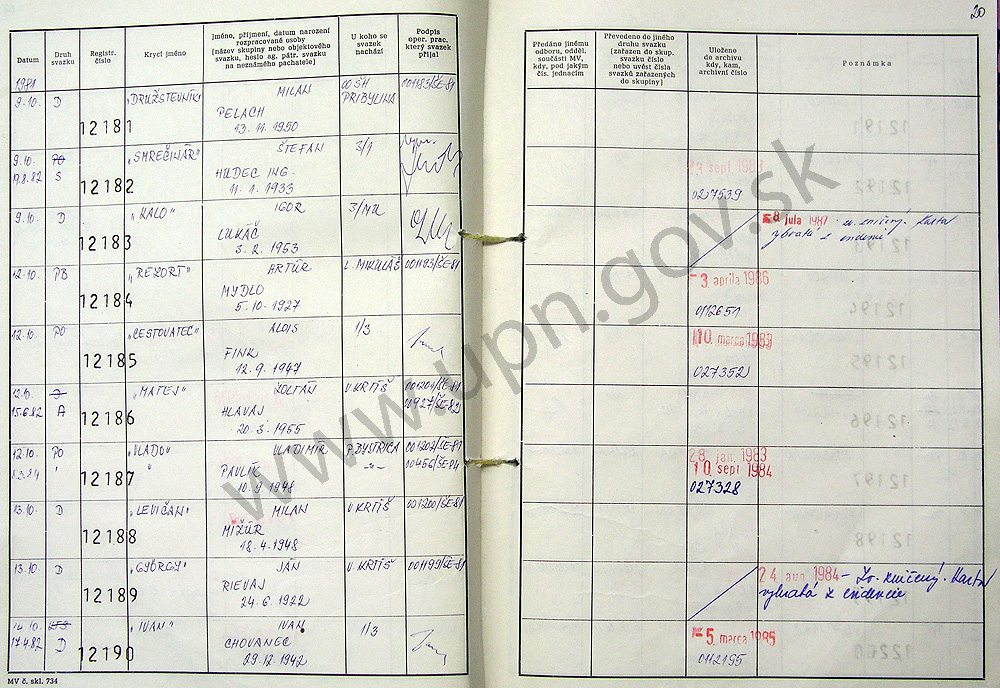 20
Datum
Druh svazku
Registr. číslo
Krycí jméno
Jméno, příjmení, datum narození
rozpracované osoby
(název skupiny nebo objektového
svazku, heslo ag. pátr. svazku
na neznámého pachatele)
U koho se
svazek
nachází
Podpis
oper. prac.
který svazek
přijal
Předáno jinému
odboru, odděl.
součásti MV,
kdy, pod jakým
čís. jednacím
Převedeno do jiného
druhu svazku
(zařazen do skup.
svazku číslo
nebo uvést čísla
svazků zařazených
do skupiny)
Uloženo
do archivu
kdy, kam,
archivní číslo
Poznámka
1981
9.10. D 12181 "DRUŽSTEVNÍK" MILAN OO ŠH 001183/ŠE-81
PELACH PRIBYLINA
13.11.1950
9.10. PO "SMREČINÁR" ŠTEFAN 3/1
19.8.82 S 12182 HUDEC ING.
11.1.1933
23 sept. 1983
0207539
9.10. D "KALO" IGOR 3/MU
12183 LUKÁČ
3.2.1953
8 jula 1987 - zv. zničený. Karta
vybratá z evidencie
12.10. PB "REZORT" ARTÚR L. MIKULÁŠ 001193/ŠE-81
12184 MYDLO
5.10.1927
3 apríla 1986
0112651
12.10. PO "CESTOVATEĽ" ALOJS 1/3
12185 FINK
12.9.1947
10 marca 1983
027352
12.10. D "MATEJ" ZOLTÁN V KRTÍŠ 001201/ŠE-81
15.6.82 A 12186 HLAVAJ 00927/ŠE-82
20.3.1955
12.10. PO "VLADO" VLADIMÍR P. BYSTRICA 001202/ŠE-81
8.3.84 " " 12187 PAVLÍK -"- 00456/ŠE-84
10.9.1948
28 jan. 1983
10 sept 1984
027328
13.10. D "LEVIČAN" MILAN V KRTÍŠ 001200/ŠE-81
12188 MIŽÚR
18.4.1948
13.10. D "GYÖRGY" JÁN V. KRTÍŠ 001199/ŠE-81
12189 RIEVAJ
24.6.1922
24 aug 1984 - Zv. zničený. Karta
vybratá z evidencie
14.10. "IVAN" IVAN 1/3
17.4.82 D 12190 CHOVANEC
29.12.1942
5 marca 1985
0112195
MV č. skl. 734
www.upn.gov.sk